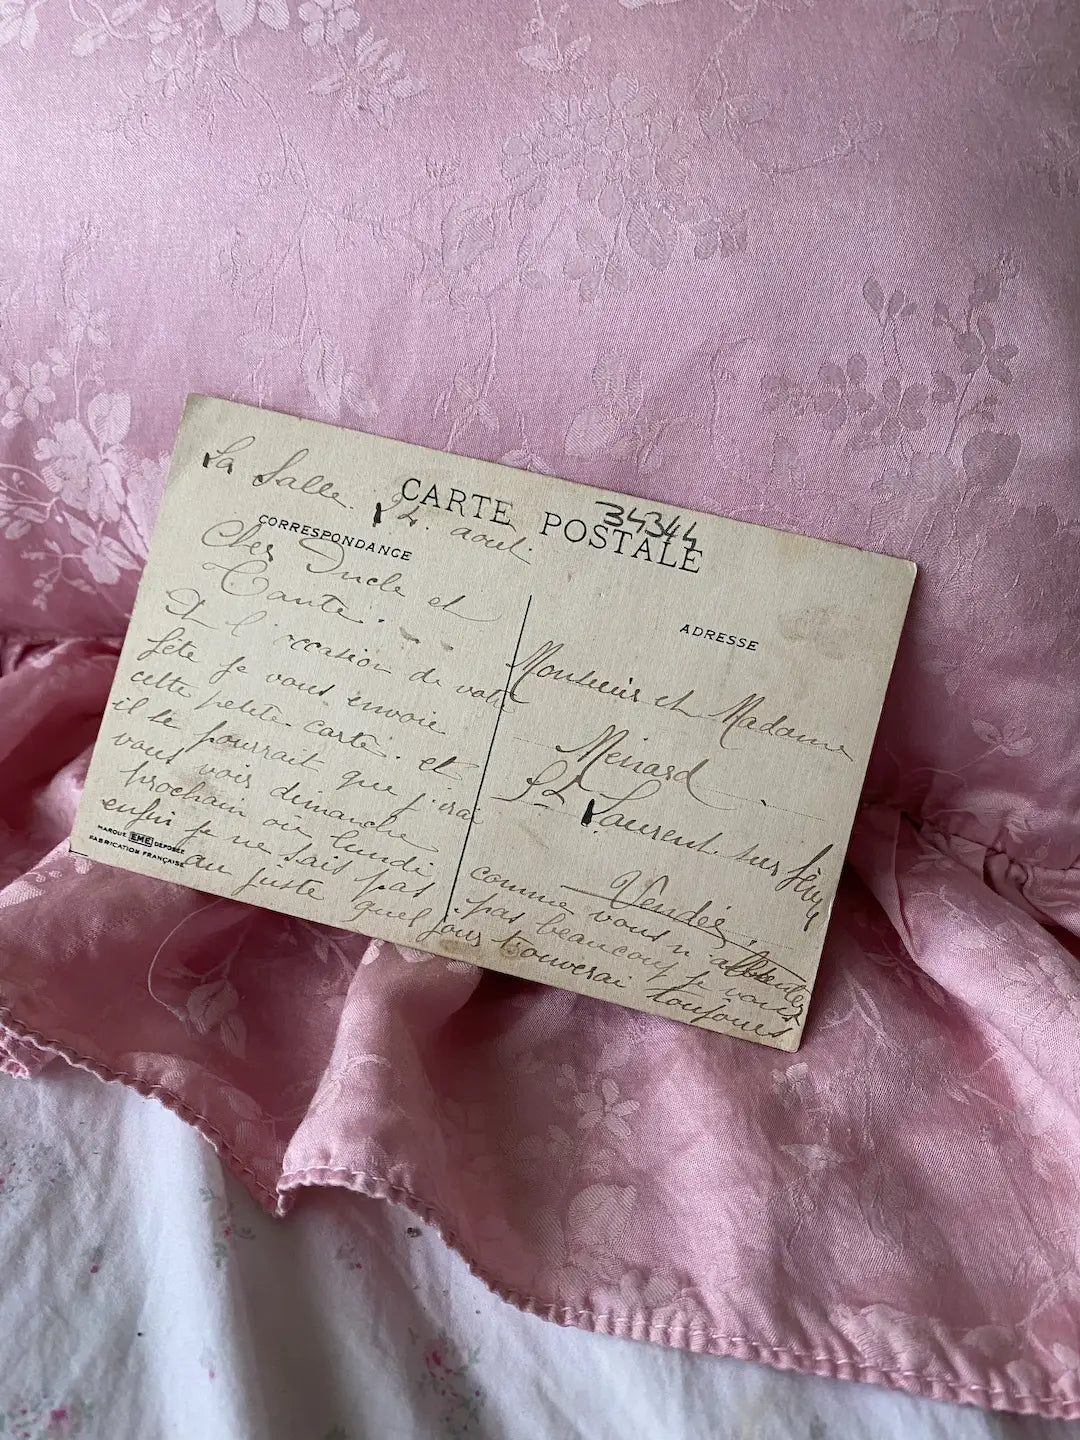 La Salle. 24. aout.
CARTE POSTALE
34344
CORRESPONDANCE
Cher Oncle et
Tante.
A l'occasion de votre
fête je vous envoie
cette petite carte. et
il se pourrait que j'irai
vous voir dimanche
prochain ou lundi
enfin je ne sais pas
au juste quel jour
MARQUE EME DEPOSÉE
FABRICATION FRANÇAISE
ADRESSE
Monsieur et Madame
Menard
St Laurent. sur Sèvre
Vendée.
comme vous n'
pas beaucoup je vous
trouverai toujours